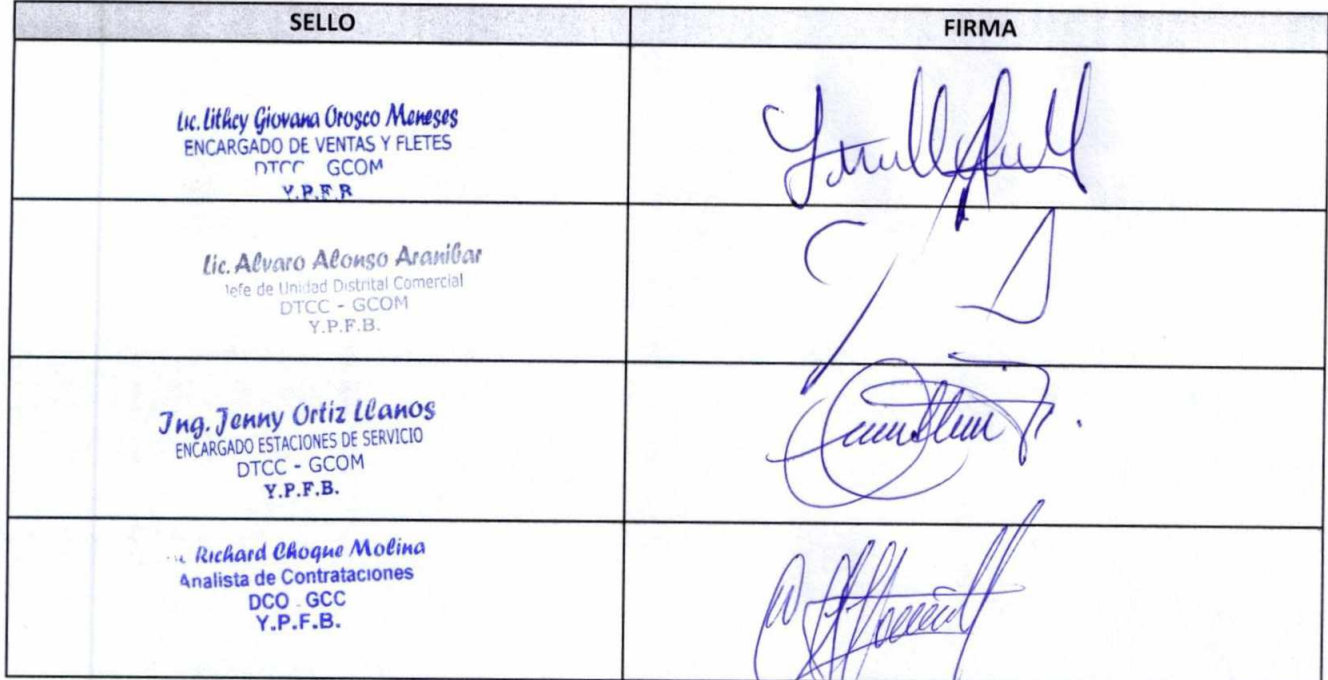 SELLO FIRMA
Lic. Lithcy Giovana Orosco Meneses
ENCARGADO DE VENTAS Y FLETES
DTCC GCOM
Y.P.F.B
Lic. Alvaro Alonso Aranibar
Jefe de Unidad Distrital Comercial
DTCC - GCOM
Y.P.F.B.
Ing. Jenny Ortiz Llanos
ENCARGADO ESTACIONES DE SERVICIO
DTCC - GCOM
Y.P.F.B.
Richard Choque Molina
Analista de Contrataciones
DCO - GCC
Y.P.F.B.